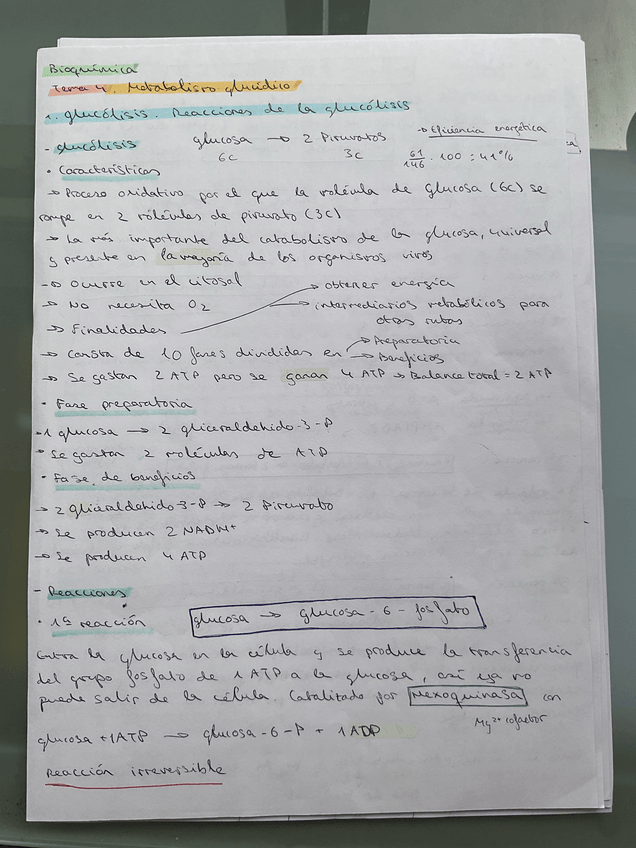 Bioquímica
Tema 4. Metabolismo glucídico
1. glucólisis. Reacciones de la glucólisis
- glucólisis glucosa → 2 Piruvatos → Eficiencia energética
6c 3c 61/146 · 100 = 41%
• Características
→ Proceso oxidativo por el que la molécula de glucosa (6c) se
rompe en 2 moléculas de piruvato (3c)
→ La más importante del catabolismo de la glucosa, universal
y presente en la mayoría de los organismos vivos
→ Ocurre en el citosol → obtener energía
→ No necesita O2 → intermediarios metabólicos para
otras rutas
→ Finalidades
→ Consta de 10 fases divididas en → Preparatoria
→ Beneficios
→ Se gastan 2 ATP pero se ganan 4 ATP → Balance total = 2 ATP
• Fase preparatoria
→ 1 glucosa → 2 gliceraldehido-3-P
→ Se gastan 2 moléculas de ATP
• Fase de beneficios
→ 2 gliceraldehido-3-P → 2 Piruvato
→ Se producen 2 NADH+
→ Se producen 4 ATP
- Reacciones
• 1ª reacción glucosa → glucosa-6-fosfato
Entra la glucosa en la célula y se produce la transferencia
del grupo fosfato de 1 ATP a la glucosa, así ya no
puede salir de la célula. Catalizado por Hexoquinasa con
Mg2+ cofactor
glucosa + 1ATP → glucosa-6-P + 1ADP
Reacción irreversible